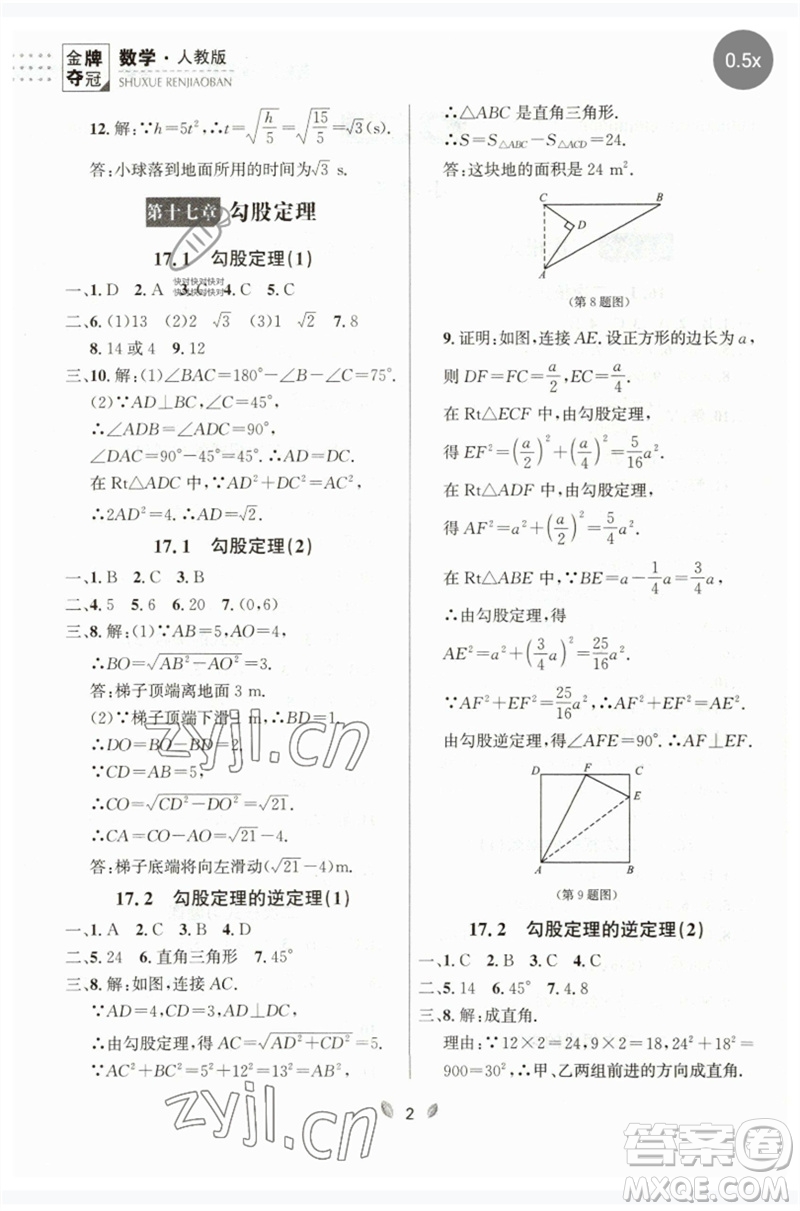 金牌夺冠 数学·人教版
SHUXUE RENJIAOBAN
0.5x
12. 解:∵h=5t²,∴t=√(h/5)=√(15/5)=√3(s).
答:小球落到地面所用的时间为√3 s.
第十七章 勾股定理
17.1 勾股定理(1)
一、1. D 2. A 3. C 4. C 5. C
快对快对快对
快对快对快对
二、6. (1)13 (2)2 √3 (3)√2 7. 8
8. 14或4 9. 12
三、10. 解:(1)∠BAC=180°-∠B-∠C=75°.
(2)∵AD⊥BC,∠C=45°,
∴∠ADB=∠ADC=90°,
∠DAC=90°-45°=45°.∴AD=DC.
在Rt△ADC中,∵AD²+DC²=AC²,
∴2AD²=4.∴AD=√2.
17.1 勾股定理(2)
一、1. B 2. C 3. B
二、4. 5 5. 6 6. 20 7. (0,6)
三、8. 解:(1)∵AB=5,AO=4,
∴BO=√(AB²-AO²)=3.
答:梯子顶端离地面3 m.
(2)∵梯子顶端下滑1 m,∴BD=1.
∴DO=BO-BD=2.
∵CD=AB=5,
∴CO=√(CD²-DO²)=√21.
∴CA=CO-AO=√21-4.
答:梯子底端将向左滑动(√21-4)m.
17.2 勾股定理的逆定理(1)
一、1. B 2. A 3. A 4. D
二、5. 24 6. 直角三角形 7. 45°
三、8. 解:如图,连接AC.
∵AD=4,CD=3,AD⊥DC,
∴由勾股定理,得AC=√(AD²+CD²)=5.
∵AC²+BC²=5²+12²=13²=AB²,
∴△ABC是直角三角形.
∴S=S△ABC-S△ACD=24.
答:这块地的面积是24 m².
C B
D
A
(第8题图)
9. 证明:如图,连接AE.设正方形的边长为a,
则DF=FC=a/2,EC=a/4.
在Rt△ECF中,由勾股定理,
得EF²=(a/2)²+(a/4)²=5/16a².
在Rt△ADF中,由勾股定理,
得AF²=a²+(a/2)²=5/4a².
在Rt△ABE中,∵BE=a-1/4a=3/4a,
∴由勾股定理,得
AE²=a²+(3/4a)²=25/16a².
∵AF²+EF²=25/16a²,∴AF²+EF²=AE².
由勾股逆定理,得∠AFE=90°.∴AF⊥EF.
D F C
E
A B
(第9题图)
17.2 勾股定理的逆定理(2)
一、1. C 2. B 3. C 4. C
二、5. 14 6. 45° 7. 4.8
三、8. 解:成直角.
理由:∵12×2=24,9×2=18,24²+18²=
900=30²,∴甲、乙两组前进的方向成直角.
zyjl.cn
zyjl.cn
2
答案卷
MXQE.COM